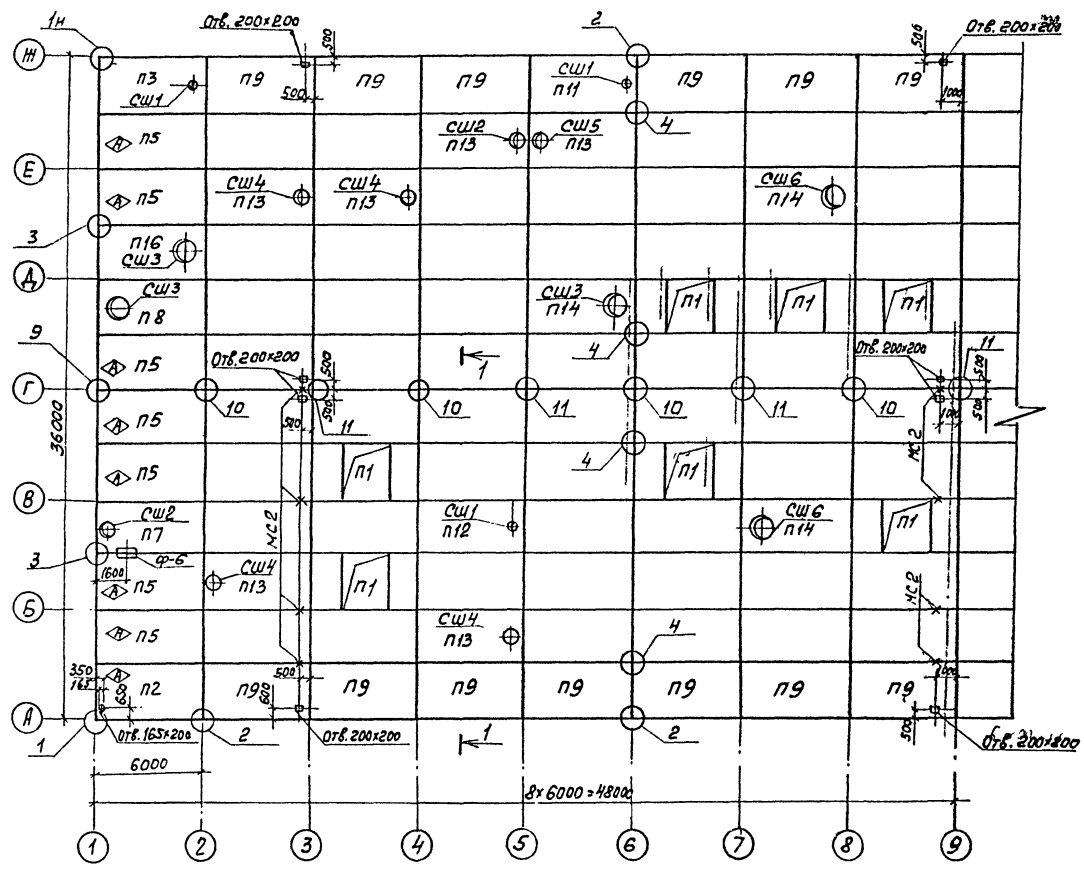 1н
Отв. 200×200
500
2
500
Отв. 200×200
Ж
п3
СШ1
п9
500
п9
п9
СШ1
п11
п9
п9
п9
1000
4
А п5
СШ2
п13
СШ5
п13
Е
А п5
СШ4
п13
СШ4
п13
СШ6
п14
3
п16
СШ3
Д
СШ3
п8
СШ3
п14
п1
п1
п1
9
А п5
Отв. 200×200
500
1
4
Отв. 200×200
11
500
Г
10
500
11
10
11
10
11
10
1000
500
36000
А п5
500
МС2
А п5
п1
4
п1
В
МС2
СШ2
п7
СШ1
п12
СШ6
п14
п1
3
ф-6
1600
СШ4
п13
п1
А п5
МС2
Б
А п5
СШ4
п13
4
350
165
А
п2
650
п9
600
500
п9
п9
п9
п9
п9
п9
500
А
1
Отв. 165×200
2
Отв. 200×200
1
2
Отв. 200×200
6000
8×6000=48000
1
2
3
4
5
6
7
8
9